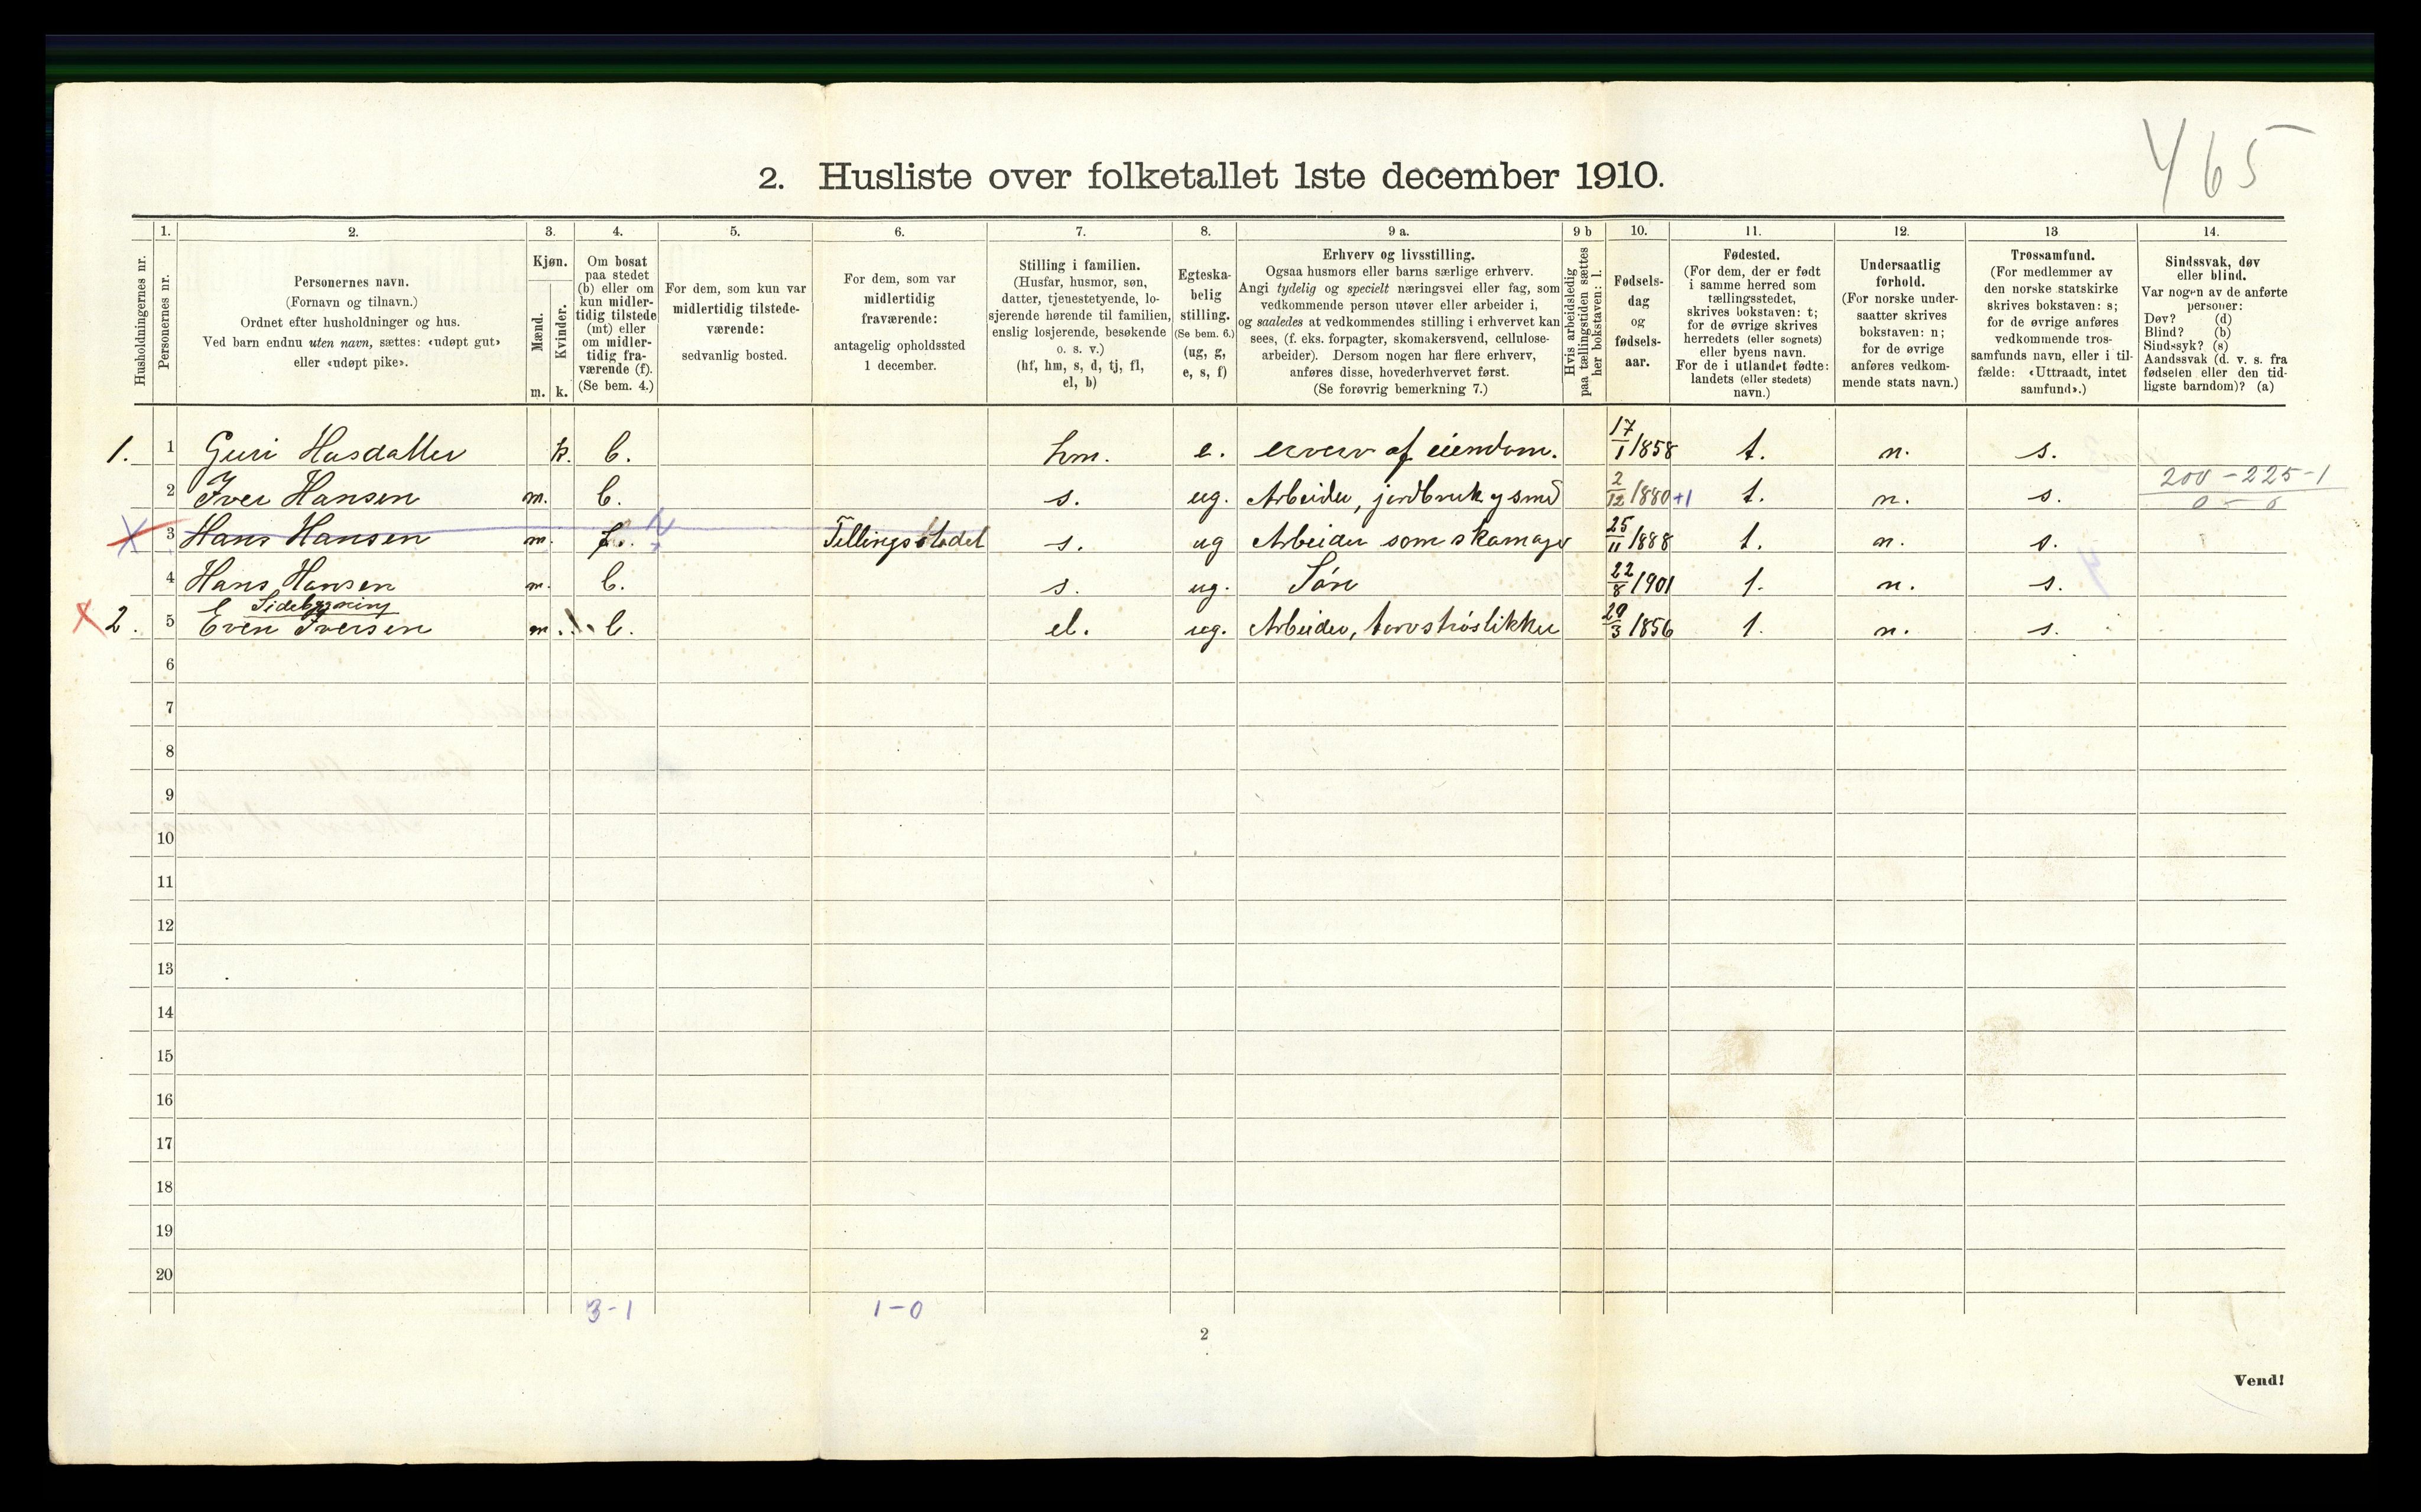 465
2. Husliste over folketallet 1ste december 1910.
Husholdningernes nr.
1.
Personernes nr.
2.
Personernes navn.
(Fornavn og tilnavn.)
Ordnet efter husholdninger og hus.
Ved barn endnu uten navn, sættes: «udøpt gut»
eller «udøpt pike».
3.
Kjøn.
Mænd.
m.
Kvinder.
k.
4.
Om bosat
paa stedet
(b) eller om
kun midler-
tidig tilstede
(mt) eller
om midler-
tidig fra-
værende (f).
(Se bem. 4.)
5.
For dem, som kun var
midlertidig tilstede-
værende:
sedvanlig bosted.
6.
For dem, som var
midlertidig
fraværende:
antagelig opholdssted
1 december.
7.
Stilling i familien.
(Husfar, husmor, søn,
datter, tjenestetyende, lo-
sjerende hørende til familien,
enslig losjerende, besøkende
o. s. v.)
(hf, hm, s, d, tj, fl,
el, b)
8.
Egteska-
belig
stilling.
(Se bem. 6.)
(ug, g,
e, s, f)
9 a.
Erhverv og livsstilling.
Ogsaa husmors eller barns særlige erhverv.
Angi tydelig og specielt næringsvei eller fag, som
vedkommende person utøver eller arbeider i,
og saaledes at vedkommendes stilling i erhvervet kan
sees, (f. eks. forpagter, skomakersvend, cellulose-
arbeider). Dersom nogen har flere erhverv,
anføres disse, hovederhvervet først.
(Se forøvrig bemerkning 7.)
9 b
Hvis arbeidsledig
paa tællingstiden sættes
her bokstaven: l.
10.
Fødsels-
dag
og
fødsels-
aar.
11.
Fødested.
(For dem, der er født
i samme herred som
tællingsstedet,
skrives bokstaven: t;
for de øvrige skrives
herredets (eller sognets)
eller byens navn.
For de i utlandet fødte:
landets (eller stedets)
navn.)
12.
Undersaatlig
forhold.
(For norske under-
saatter skrives
bokstaven: n;
for de øvrige
anføres vedkom-
mende stats navn.)
13
Trossamfund.
(For medlemmer av
den norske statskirke
skrives bokstaven: s;
for de øvrige anføres
vedkommende tros-
samfunds navn, eller i til-
fælde: «Uttraadt, intet
samfund».)
14.
Sindssvak, døv
eller blind.
Var nogen av de anførte
personer:
Døv? (d)
Blind? (b)
Sindssyk? (s)
Aandssvak (d. v. s. fra
fødselen eller den tid-
ligste barndom)? (a)
1. 1 Guri Hasdatter k. b. hm. e. erverv af eiendom. 17/1 1858 t. n. s.
2 Iver Hansen m. b. s. ug. Arbeider, jordbruk og smed 2/12 1880 +1 t. n. s. 200-225-1
0-0
X 3 Hans Hansen m. f. Tellingsstedet s. ug Arbeider som skomager 25/11 1888 t. n. s.
4 Hans Hansen m. b. s. ug. Søn 22/8 1901 t. n. s.
Sidebygning
X 2. 5 Even Iversen m. b. el. ug. Arbeider, torvstrøstikker 29/3 1856 t. n. s.
6
7
8
9
10
11
12
13
14
15
16
17
18
19
20
3-1 1-0
2
Vend!